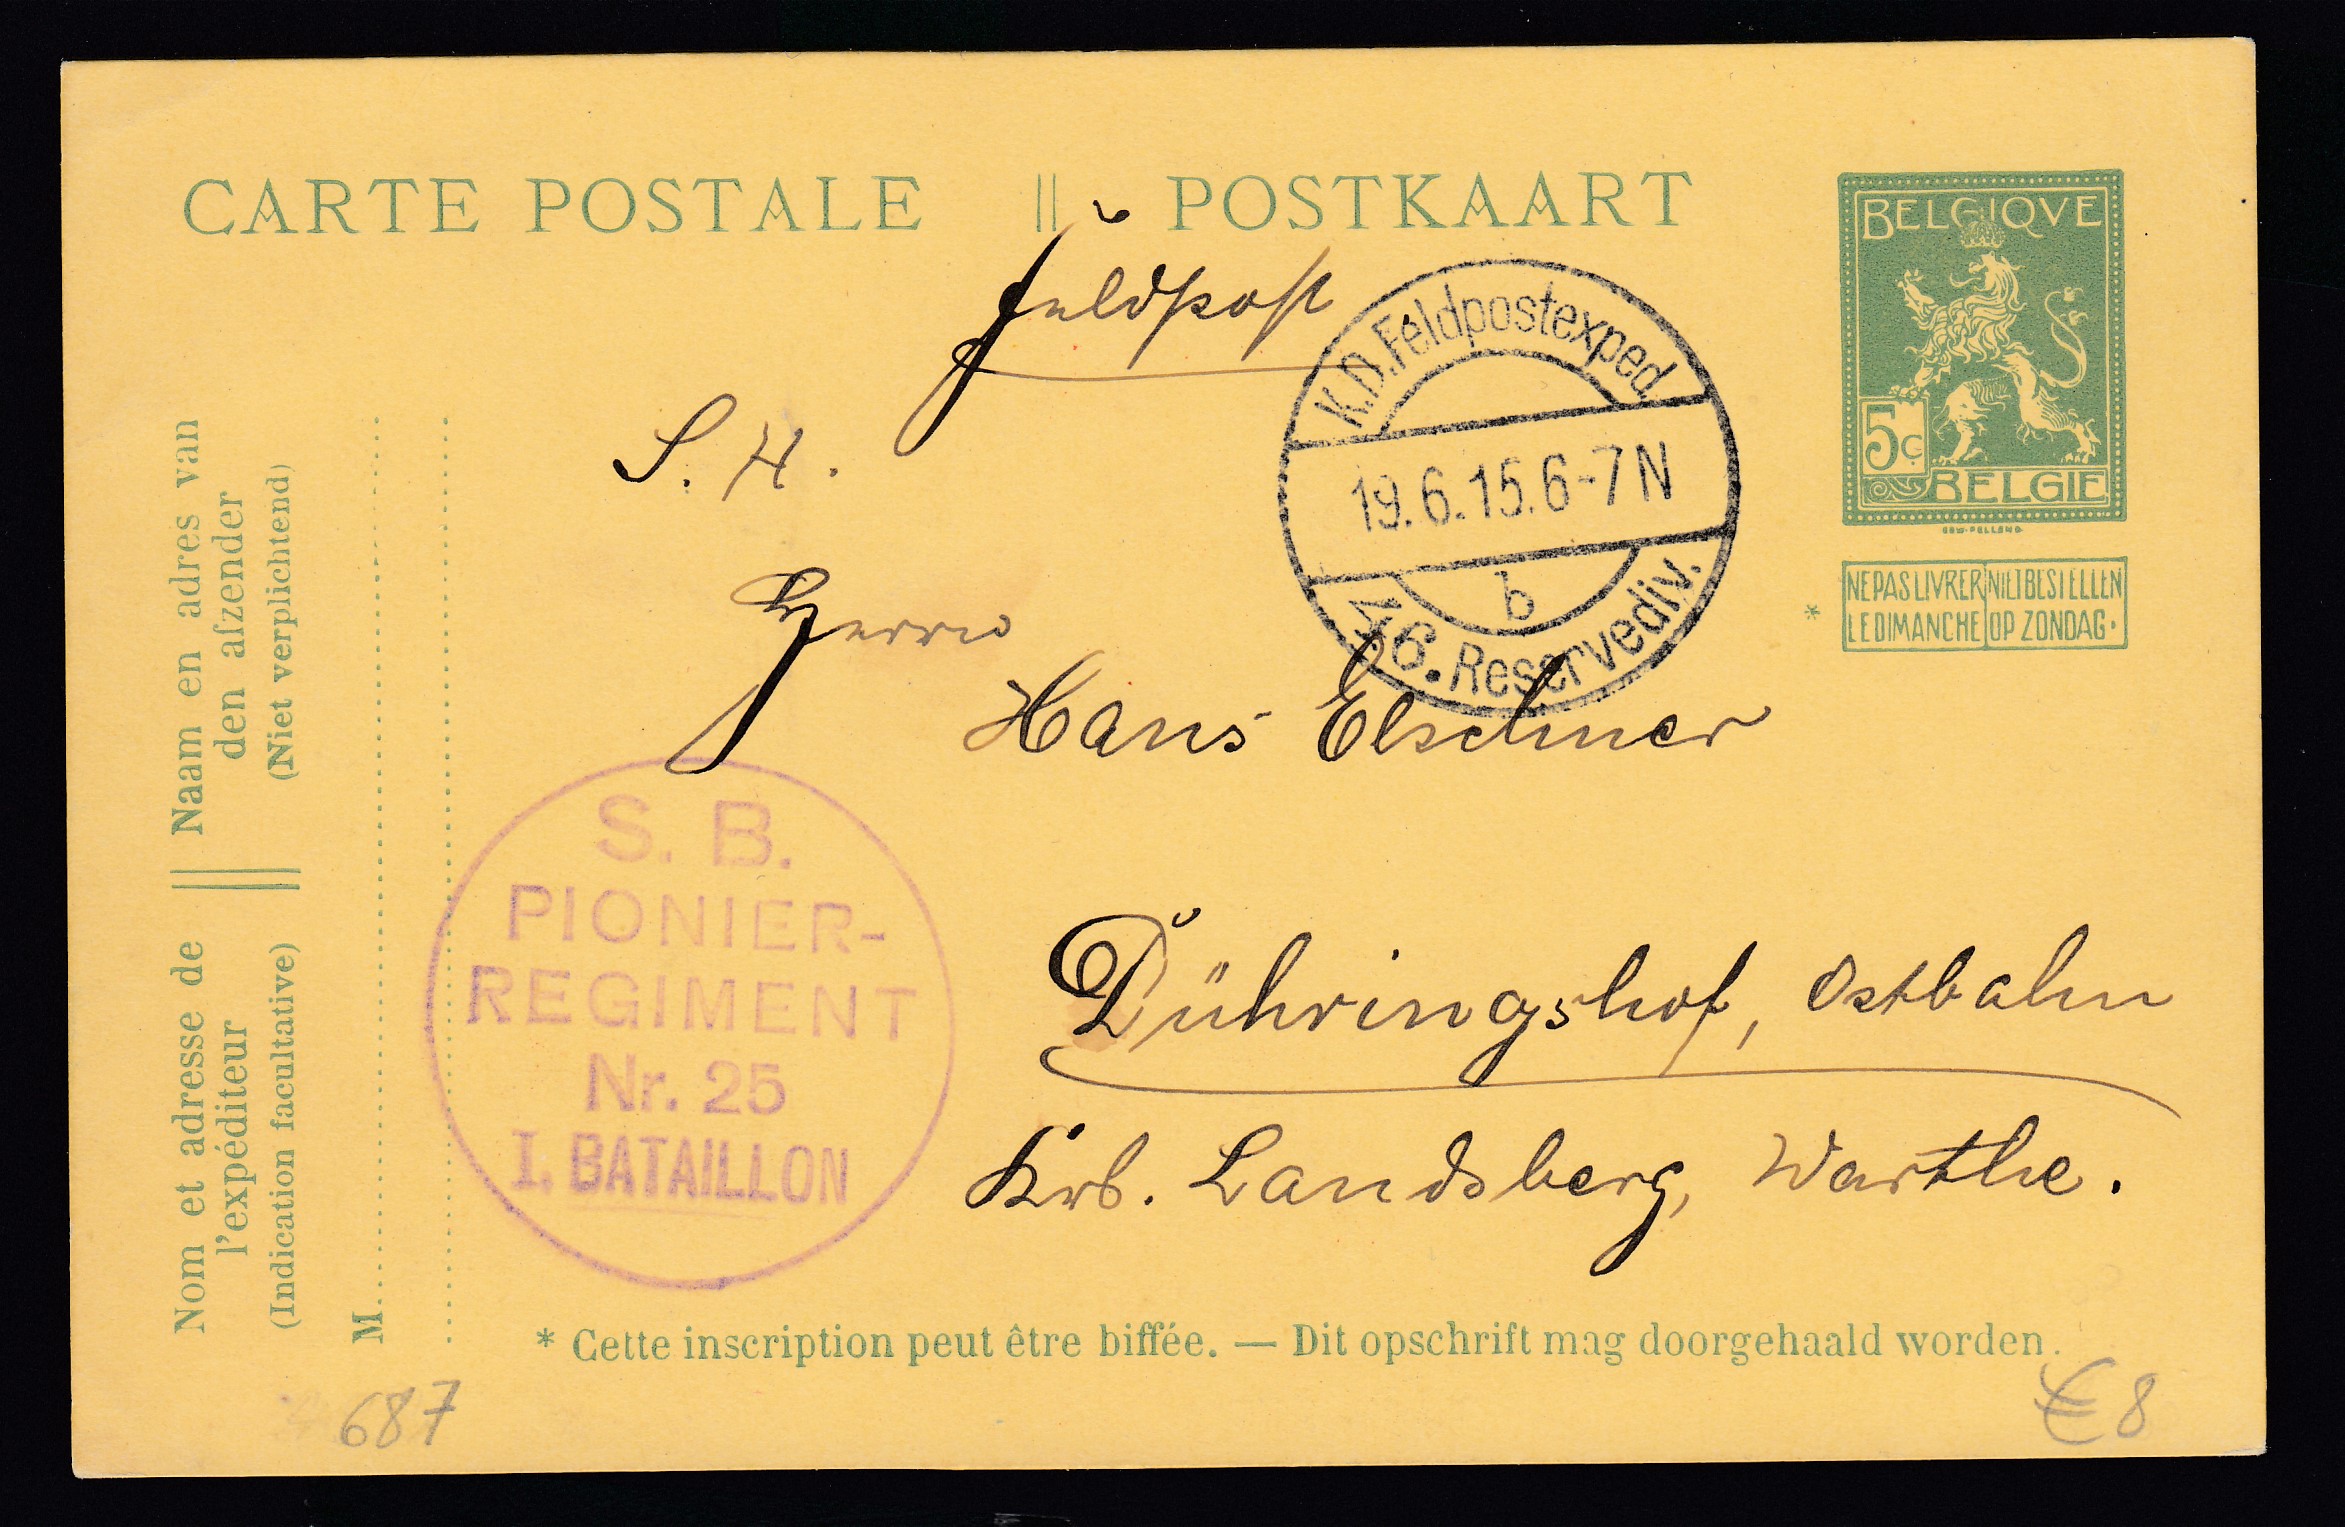 CARTE POSTALE || POSTKAART
BELGIQVE
5c
BELGIE
NE PAS LIVRER LE DIMANCHE
NIET BESTELLEN OP ZONDAG.
*
Feldpost
K.D. Feldpostexped.
19.6.15.6-7N
b
46. Reservediv.
S. H.
Herrn
Hans Elschner
Dühringshof, Ostbahn
Krs. Landsberg, Warthe.
S. B.
PIONIER-
REGIMENT
Nr. 25
I. BATAILLON
Nom et adresse de || Naam en adres van
l'expéditeur den afzender
(Indication facultative) || (Niet verplichtend)
M
* Cette inscription peut être biffée. — Dit opschrift mag doorgehaald worden.
687
€ 8